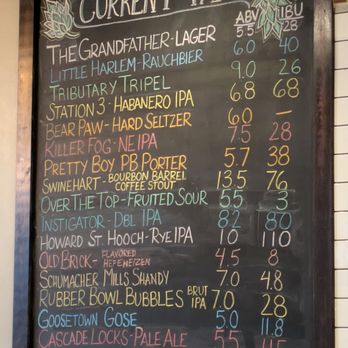 CURRENT
ABV IBU
THE GRANDFATHER-LAGER 5.5 28
LITTLE HARLEM-RAUCHBIER 6.0 40
TRIBUTARY TRIPEL 9.0 26
STATION 3-HABANERO IPA 6.8 68
BEAR PAW-HARD SELTZER 6.0 —
KILLER FOG-NEIPA 7.5 28
PRETTY BOY PB PORTER 5.7 38
SWINEHART-BOURBON BARREL COFFEE STOUT 13.5 76
OVER THE TOP-FRUITED SOUR 5.5 3
INSTIGATOR-DBL IPA 8.2 80
HOWARD ST. HOOCH-RYE IPA 10 110
OLD BRICK-FLAVORED HEFEWEIZEN 4.5 8
SCHUMACHER MILLS SHANDY 7.0 4.8
RUBBER BOWL BUBBLES BRUT IPA 7.0 28
GOOSETOWN GOSE 5.0 11.8
CASCADE LOCKS-PALE ALE 5.5